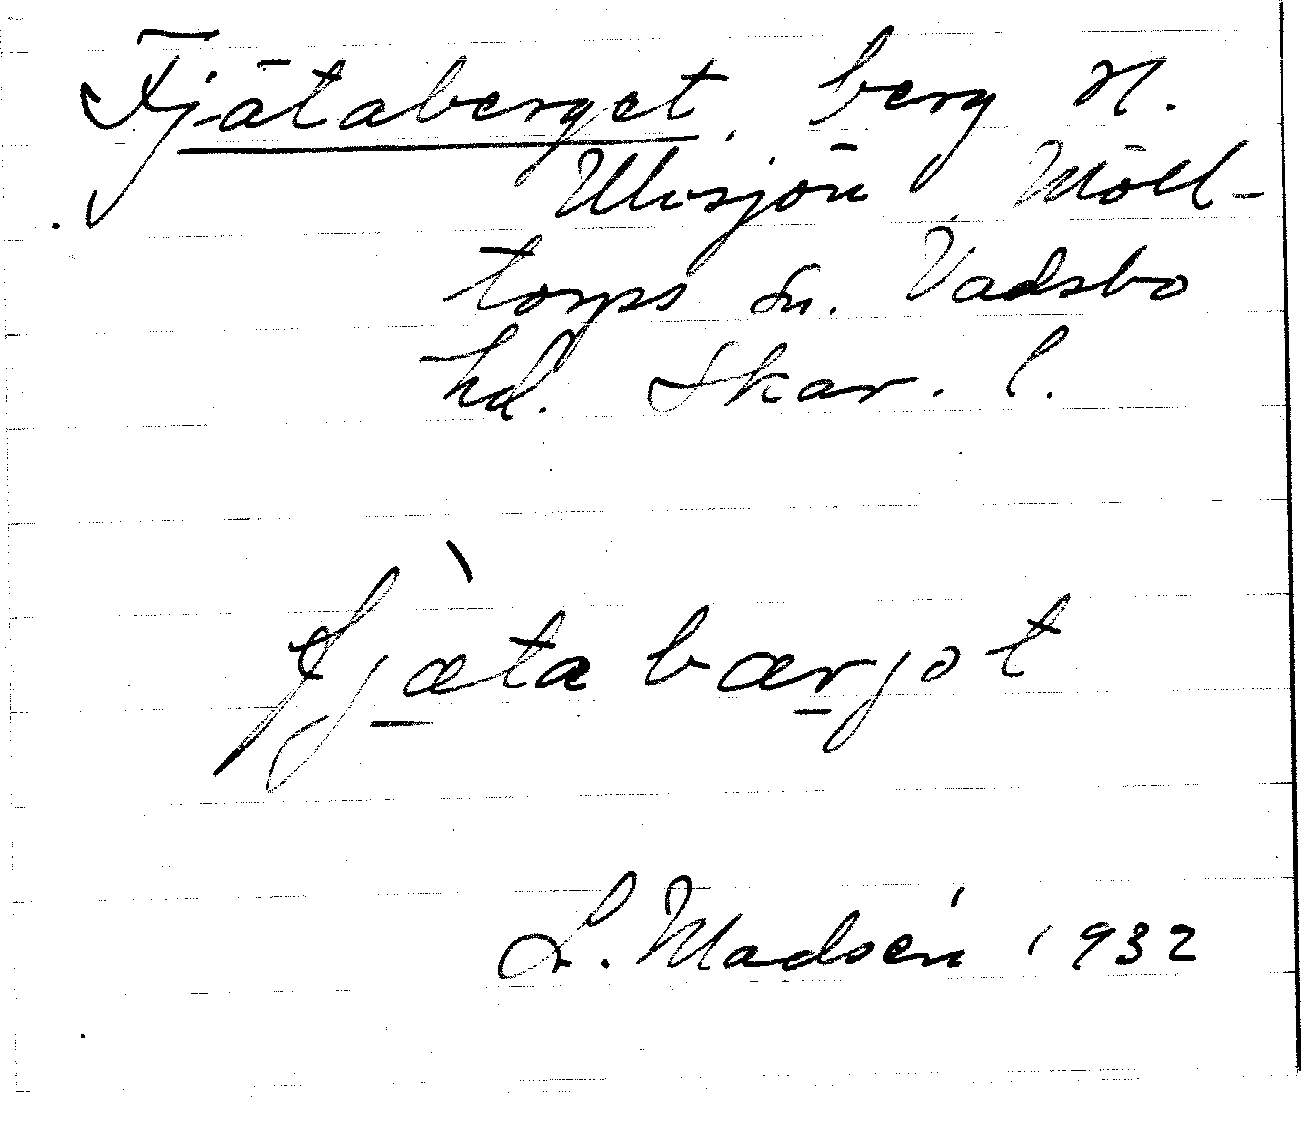 Fjätaberget, berg N.
Ulvsjön Möll-
torps sn. Vadsbo
hd. Skar. l.
fjæ̀ta bærjət
L. Madsén 1932